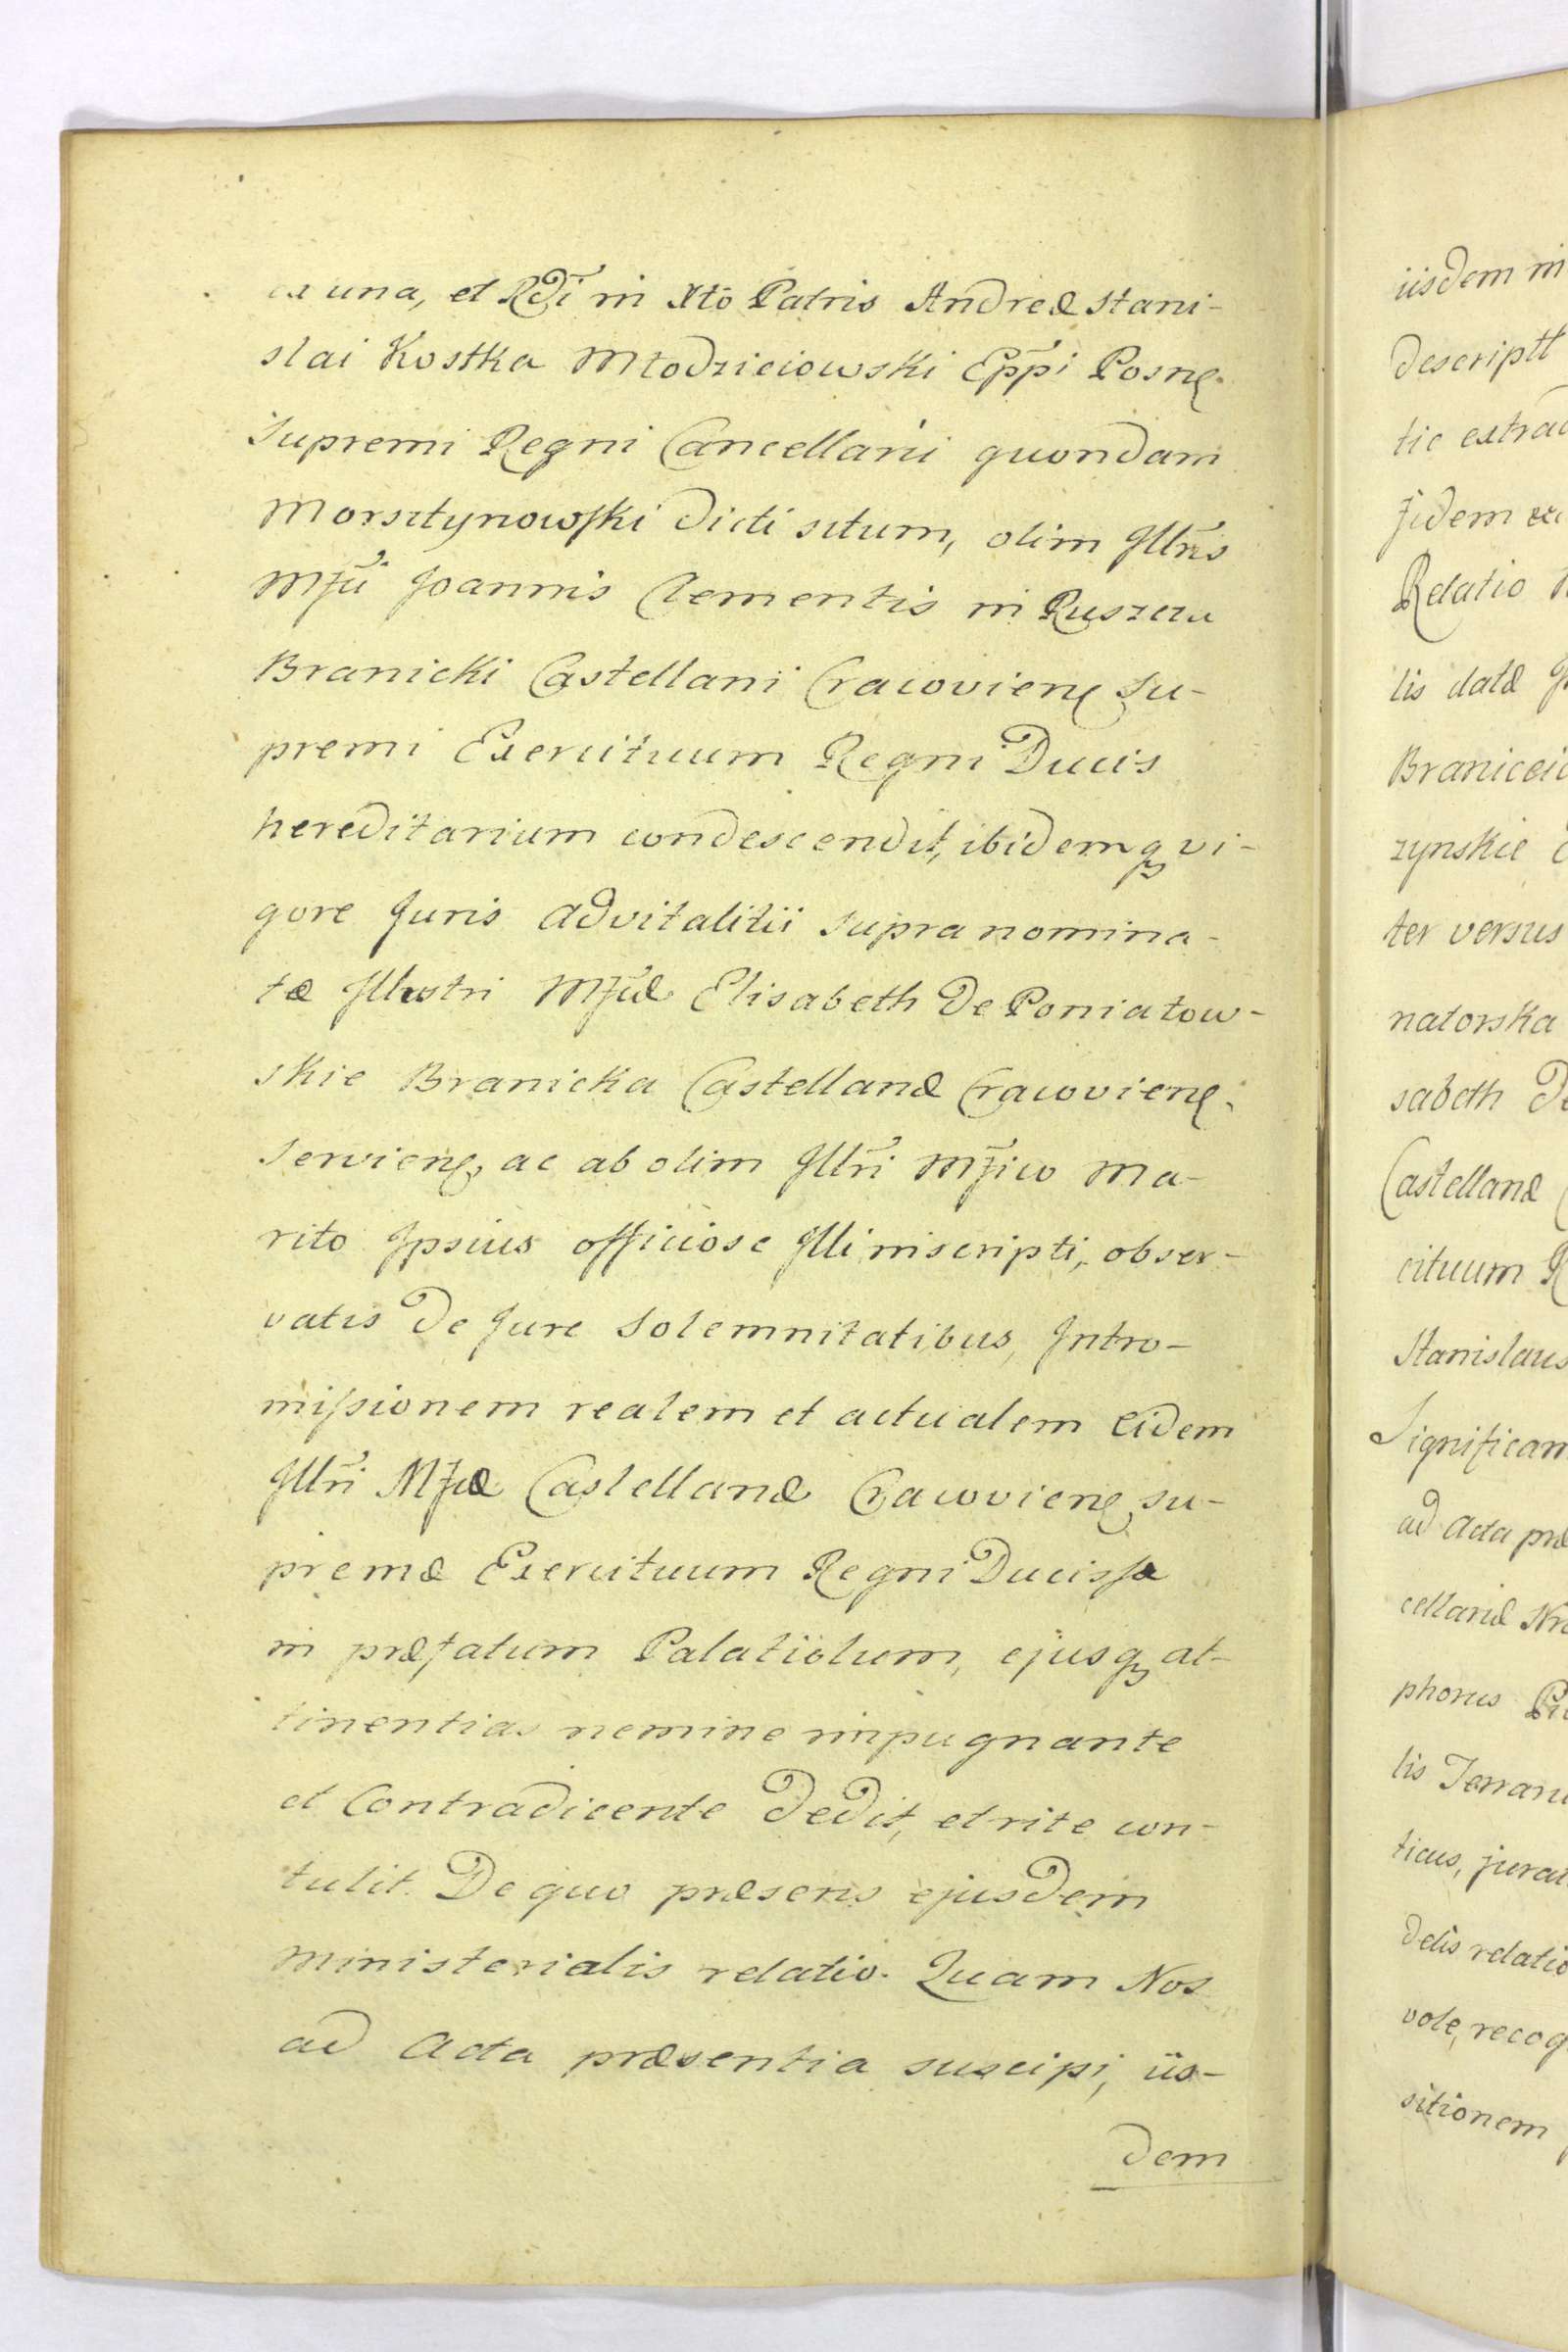 ex una, et Rdi in Xto Patris Andreæ Stani-
slai Kostka Młodzieiowski Eppi Posnen.
Supremi Regni Cancellarii quondam
Morsztynowski dicti situm, olim Jllris
Mfci Joannis Clementis in Ruszcza
Branicki Castellani Cracovien Su-
premi Exercituum Regni Ducis
hereditarium condescendit, ibidemq vi-
gore Juris advitalitii supra nomina-
tæ Jllustri Mfcæ Elisabeth de Poniatow-
skie Branicka Castellanæ Cracovien.
Servien, ac ab olim Jllri Mfico Ma-
rito Jpsius officiose Jlli inscripti, obser-
vatis de Jure Solemnitatibus, Jntro-
missionem realem et actualem eidem
Jllri Mfcæ Castellanæ Cracovien su-
premæ Exercituum Regni Ducissæ
in præfatum Palatiolum, ejusq at-
tinentias nemine impugnante
et Contradicente dedit, et rite con-
tulit. De quo præsens ejusdem
Ministerialis relatio. Quam Nos
ad Acta præsentia suscipi, iis-
dem
iisdem in
descriptt
tic extrad
fidem
Relatio
lis datæ
Branicci
zynskie
ter versus
natorska
sabeth De
Castellanæ
cituum R
Stanislaus
Significam
ad Acta præ
cellariæ Nr
phorus
lis Terrar
ticus, jurat
delis relatio
vole, recog
sitionem